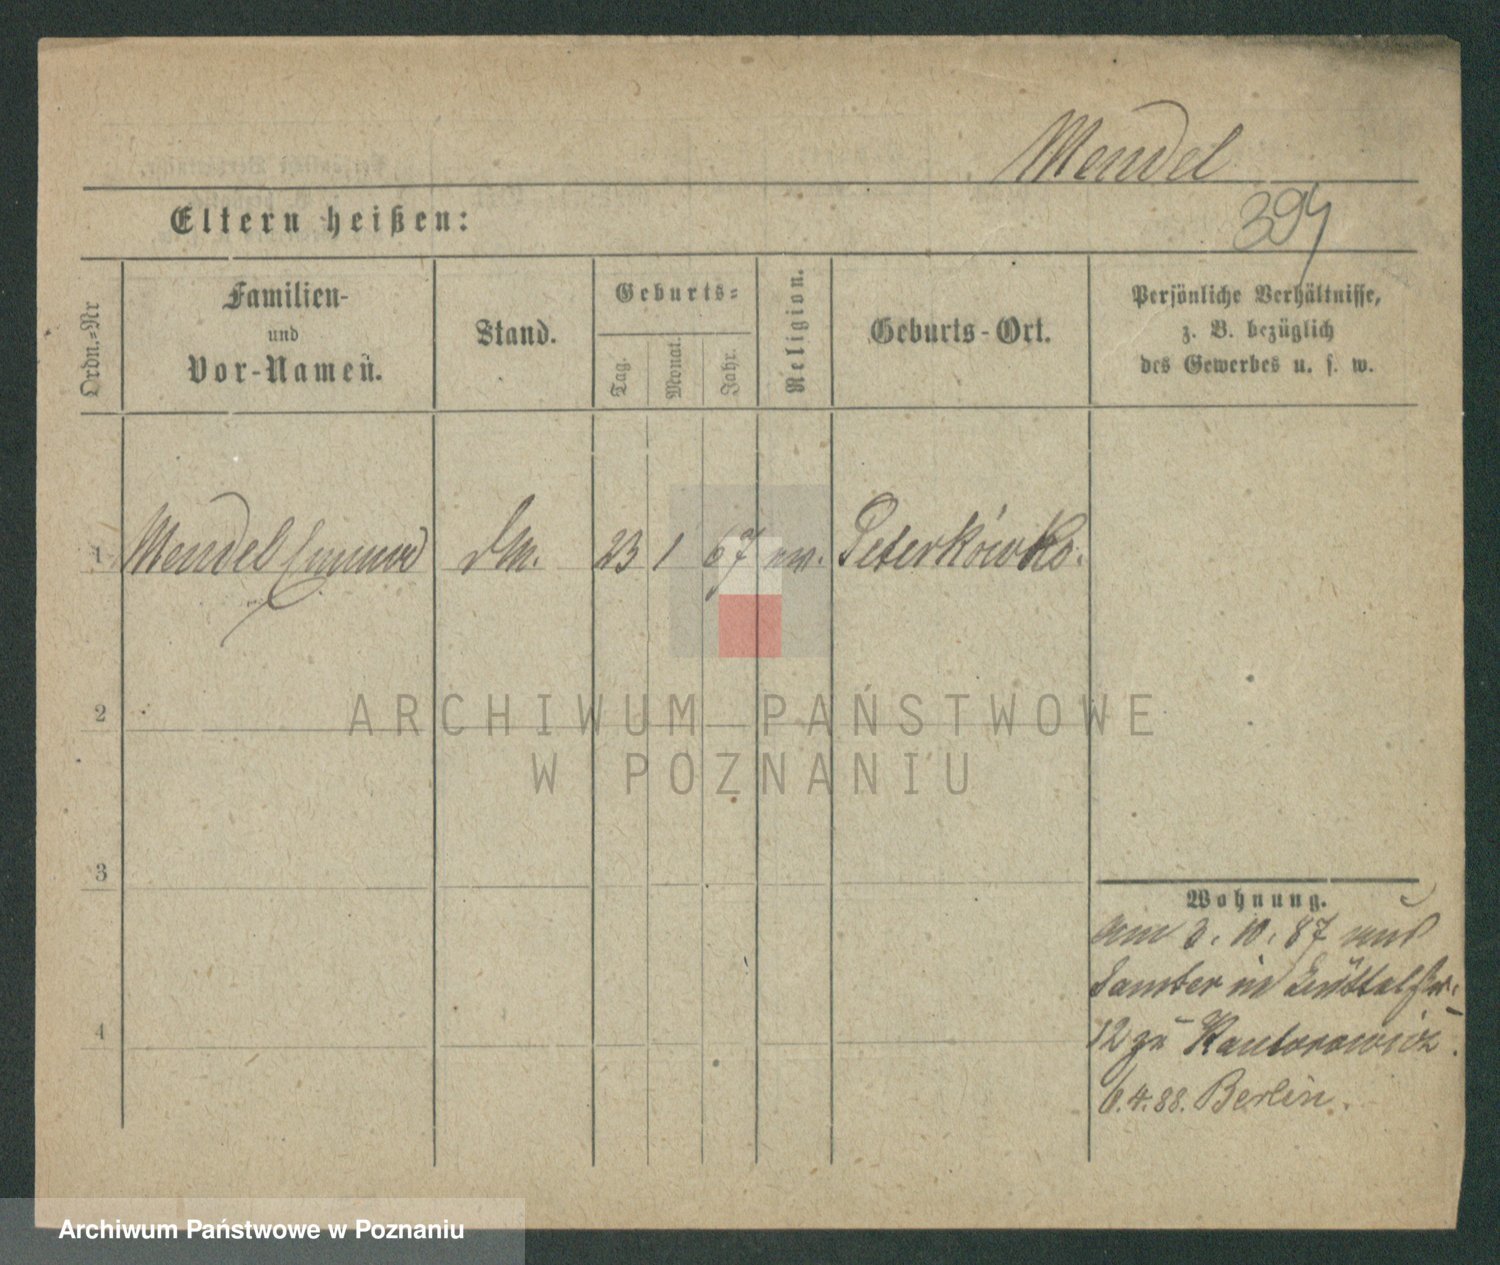 Mendel
394
Eltern heißen:
Ordn.-Nr
Familien-
und
Vor-Namen.
Stand.
Geburts-
Tag.
Monat.
Jahr.
Religion.
Geburts-Ort.
Persönliche Verhältnisse,
z. B. bezüglich
des Gewerbes u. s. w.
1 Mendel 23 1 67 Peterkówko.
2
3
4
Wohnung.
am 3. 10. 87 aus
Samter in
12 zu Kantorowicz.
6.4.88. Berlin.
ARCHIWUM PAŃSTWOWE
W POZNANIU
Archiwum Państwowe w Poznaniu